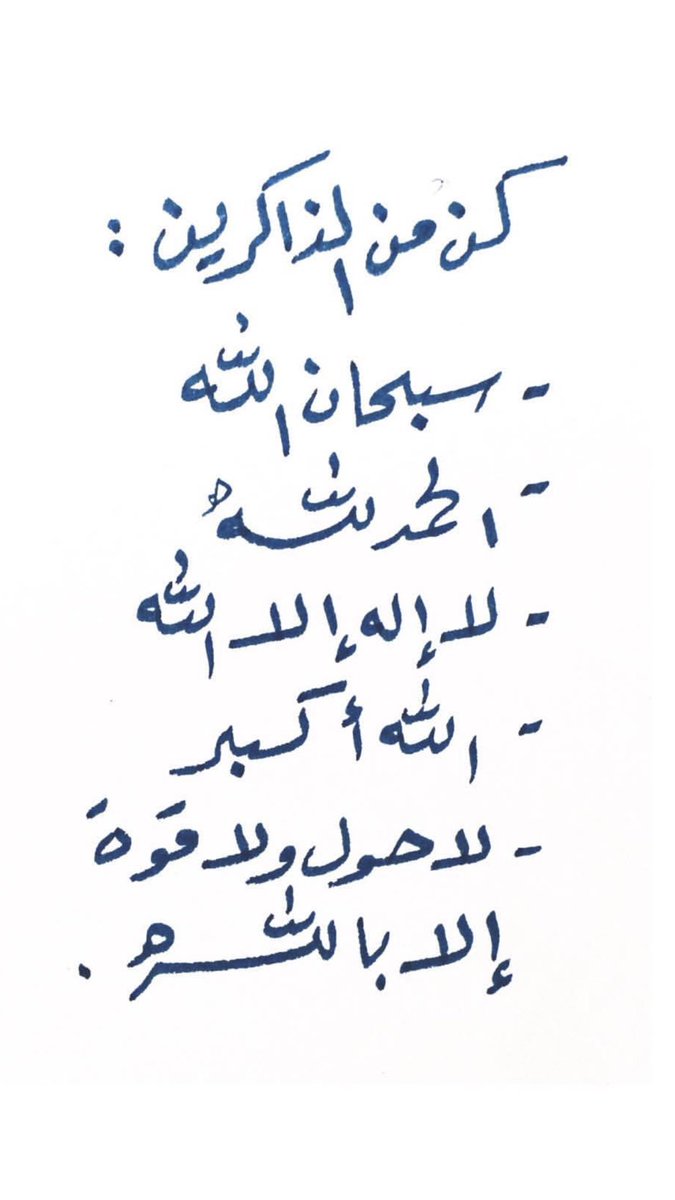 كن من الذاكرين :
- سبحان الله
- الحمد لله
- لا إله إلا الله
- الله أكبر
- لا حول ولا قوة
إلا بالله .